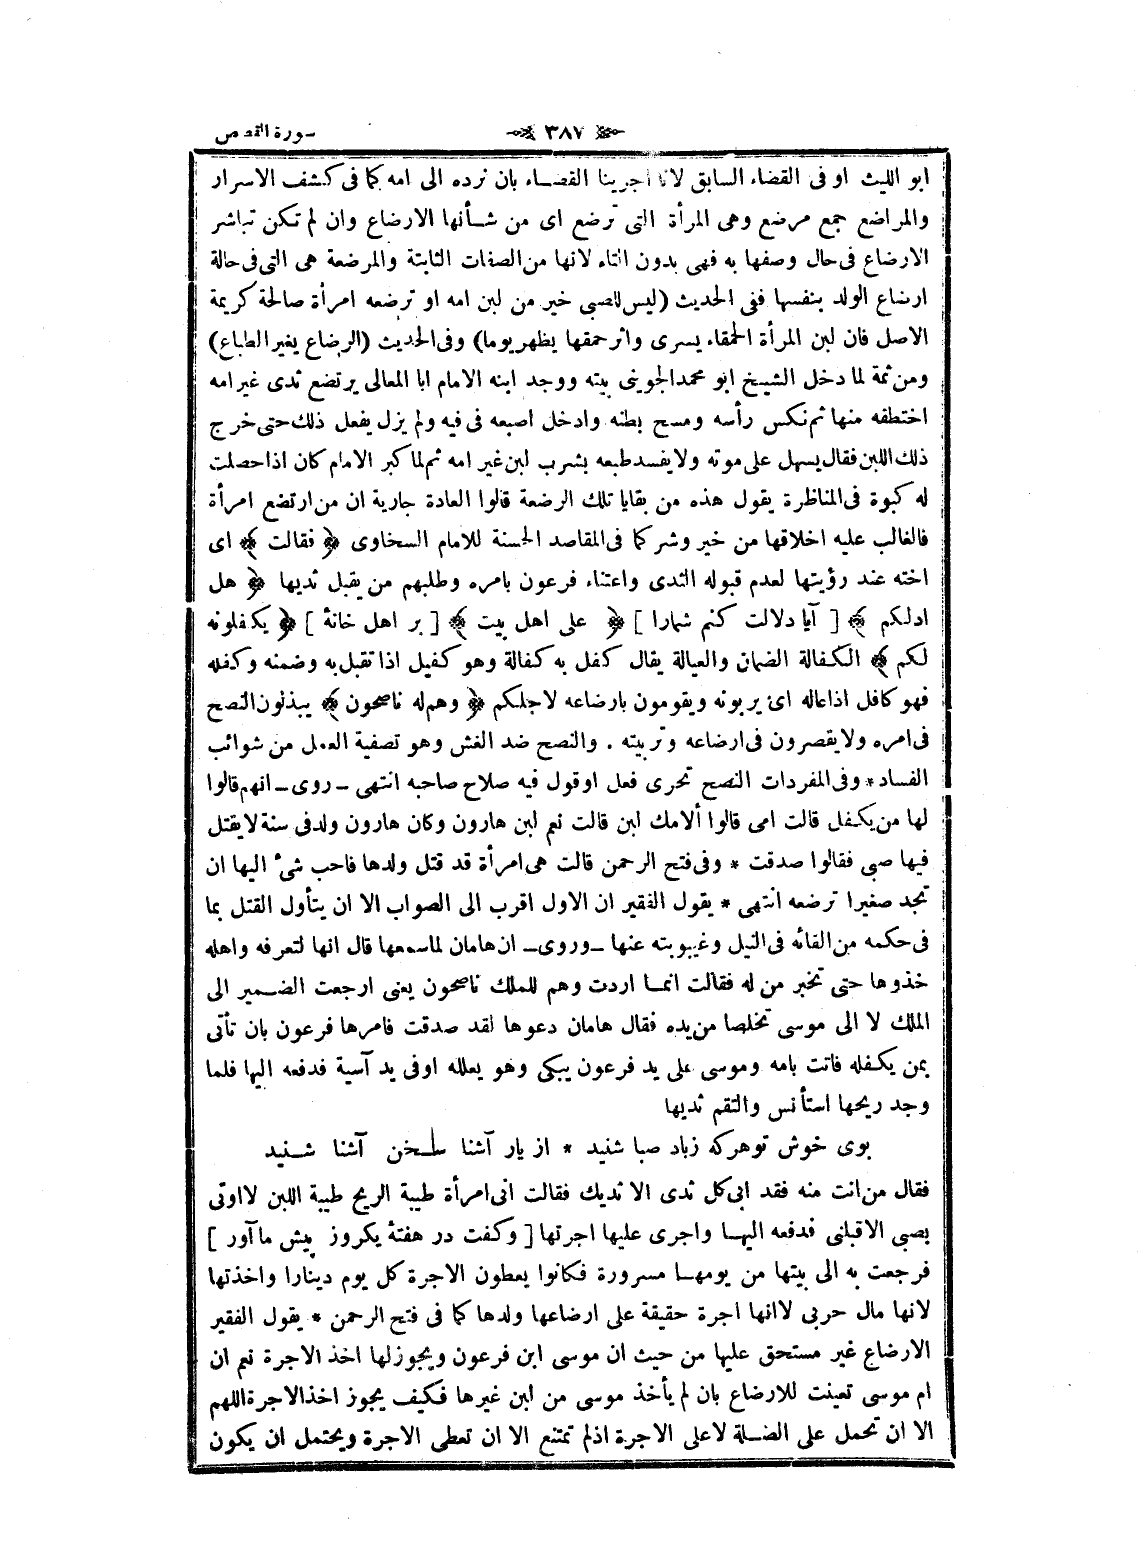 سورة القصص
٣٨٧
ابو الليث او فى القضاء السابق لانا اجرينا القضاء بان نرده الى امه كما فى كشف الاسرار
والمراضع جمع مرضع وهى المرأة التى ترضع اى من شأنها الارضاع وان لم تكن تباشر
الارضاع فى حال وصفها به فهى بدون التاء لانها من الصفات الثابتة والمرضعة هى التى فى حالة
ارضاع الولد بنفسها ففى الحديث (ليس للصبى خير من لبن امه او ترضعه امرأة صالحة كريمة
الاصل فان لبن المرأة الحمقاء يسرى واثر حمقها يظهر يوما) وفى الحديث (الرضاع يغير الطباع)
ومن ثمة لما دخل الشيخ ابو محمد الجوينى بيته ووجد ابنه الامام ابا المعالى يرتضع ثدى غير امه
اختطفه منها ثم نكس رأسه ومسح بطنه وادخل اصبعه فى فيه ولم يزل يفعل ذلك حتى خرج
ذلك اللبن فقال يسهل على موته ولا يفسد طبعه بشرب لبن غير امه ثم لما كبر الامام كان اذا حصلت
له كبوة فى المناظرة يقول هذه من بقايا تلك الرضعة قالوا العادة جارية ان من ارتضع امرأة
فالغالب عليه اخلاقها من خير وشر كما فى المقاصد الحسنة للامام السخاوى ﴿ فقالت ﴾ اى
اخته عند رؤيتها لعدم قبوله الثدى واعتناء فرعون بامره وطلبهم من يقبل ثديها ﴿ هل
ادلكم ﴾ [ آيا دلالت كنم شمارا ] ﴿ على اهل بيت ﴾ [ بر اهل خانۀ ] ﴿ يكفلونه
لكم ﴾ الكفالة الضمان والعيالة يقال كفل به كفالة وهو كفيل اذا تقبل به وضمنه وكفله
فهو كافل اذا عاله اى يربونه ويقومون بارضاعه لاجلكم ﴿ وهم له ناصحون ﴾ يبذلون النصح
فى امره ولا يقصرون فى ارضاعه وتربيته . والنصح ضد الغش وهو تصفية العمل من شوائب
الفساد * وفى المفردات النصح تحرى فعل او قول فيه صلاح صاحبه انتهى ـ روى ـ انهم قالوا
لها من يكفل قالت امى قالوا ألامك لبن قالت نعم لبن هارون وكان هارون ولد فى سنة لا يقتل
فيها صبى فقالوا صدقت * وفى فتح الرحمن قالت هى امرأة قد قتل ولدها فاحب شىء اليها ان
تجد صغيرا ترضعه انتهى * يقول الفقير ان الاول اقرب الى الصواب الا ان يتأول القتل بما
فى حكمه من القائه فى النيل وغيبوبته عنها ـ وروى ـ ان هامان لما سمعها قال انها لتعرفه واهله
خذوها حتى تخبر من له فقالت انما اردت وهم للملك ناصحون يعنى ارجعت الضمير الى
الملك لا الى موسى تخلصا من يده فقال هامان دعوها لقد صدقت فامرها فرعون بان تأتى
بمن يكفله فاتت بامه وموسى على يد فرعون يبكى وهو يعلله او فى يد آسية فدفعه اليها فلما
وجد ريحها استأنس والتقم ثديها
بوى خوش تو هركه زباد صبا شنيد * از يار آشنا سخن آشنا شنيد
فقال من انت منه فقد ابى كل ثدى الا ثديك فقالت انى امرأة طيبة الريح طيبة اللبن لا اوتى
بصبى الا قبلنى فدفعه اليها واجرى عليها اجرتها [ وكفت در هفتۀ يكروز پيش ما آور ]
فرجعت به الى بيتها من يومها مسرورة فكانوا يعطون الاجرة كل يوم دينارا واخذتها
لانها مال حربى لا انها اجرة حقيقة على ارضاعها ولدها كما فى فتح الرحمن * يقول الفقير
الارضاع غير مستحق عليها من حيث ان موسى ابن فرعون ويجوز لها اخذ الاجرة نعم ان
ام موسى تعينت للارضاع بان لم يأخذ موسى من لبن غيرها فكيف يجوز اخذ الاجرة اللهم
الا ان تحمل على الصلة لا على الاجرة اذ لم تمتنع الا ان تعطى الاجرة ويحتمل ان يكون